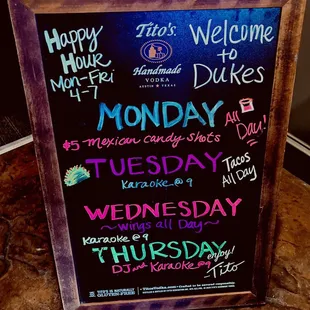 Happy
Hour
Mon-Fri
4-7
Tito's
Handmade
VODKA
AUSTIN ★ TEXAS
Welcome
to
Dukes
MONDAY
All
Day!
$5 mexican candy shots
TUESDAY
Karaoke @ 9
Tacos
All Day
WEDNESDAY
~wings all Day~
Karaoke @ 9
THURSDAY
DJ and Karaoke @9
enjoy!
-Tito
TITO'S IS NATURALLY
GLUTEN-FREE